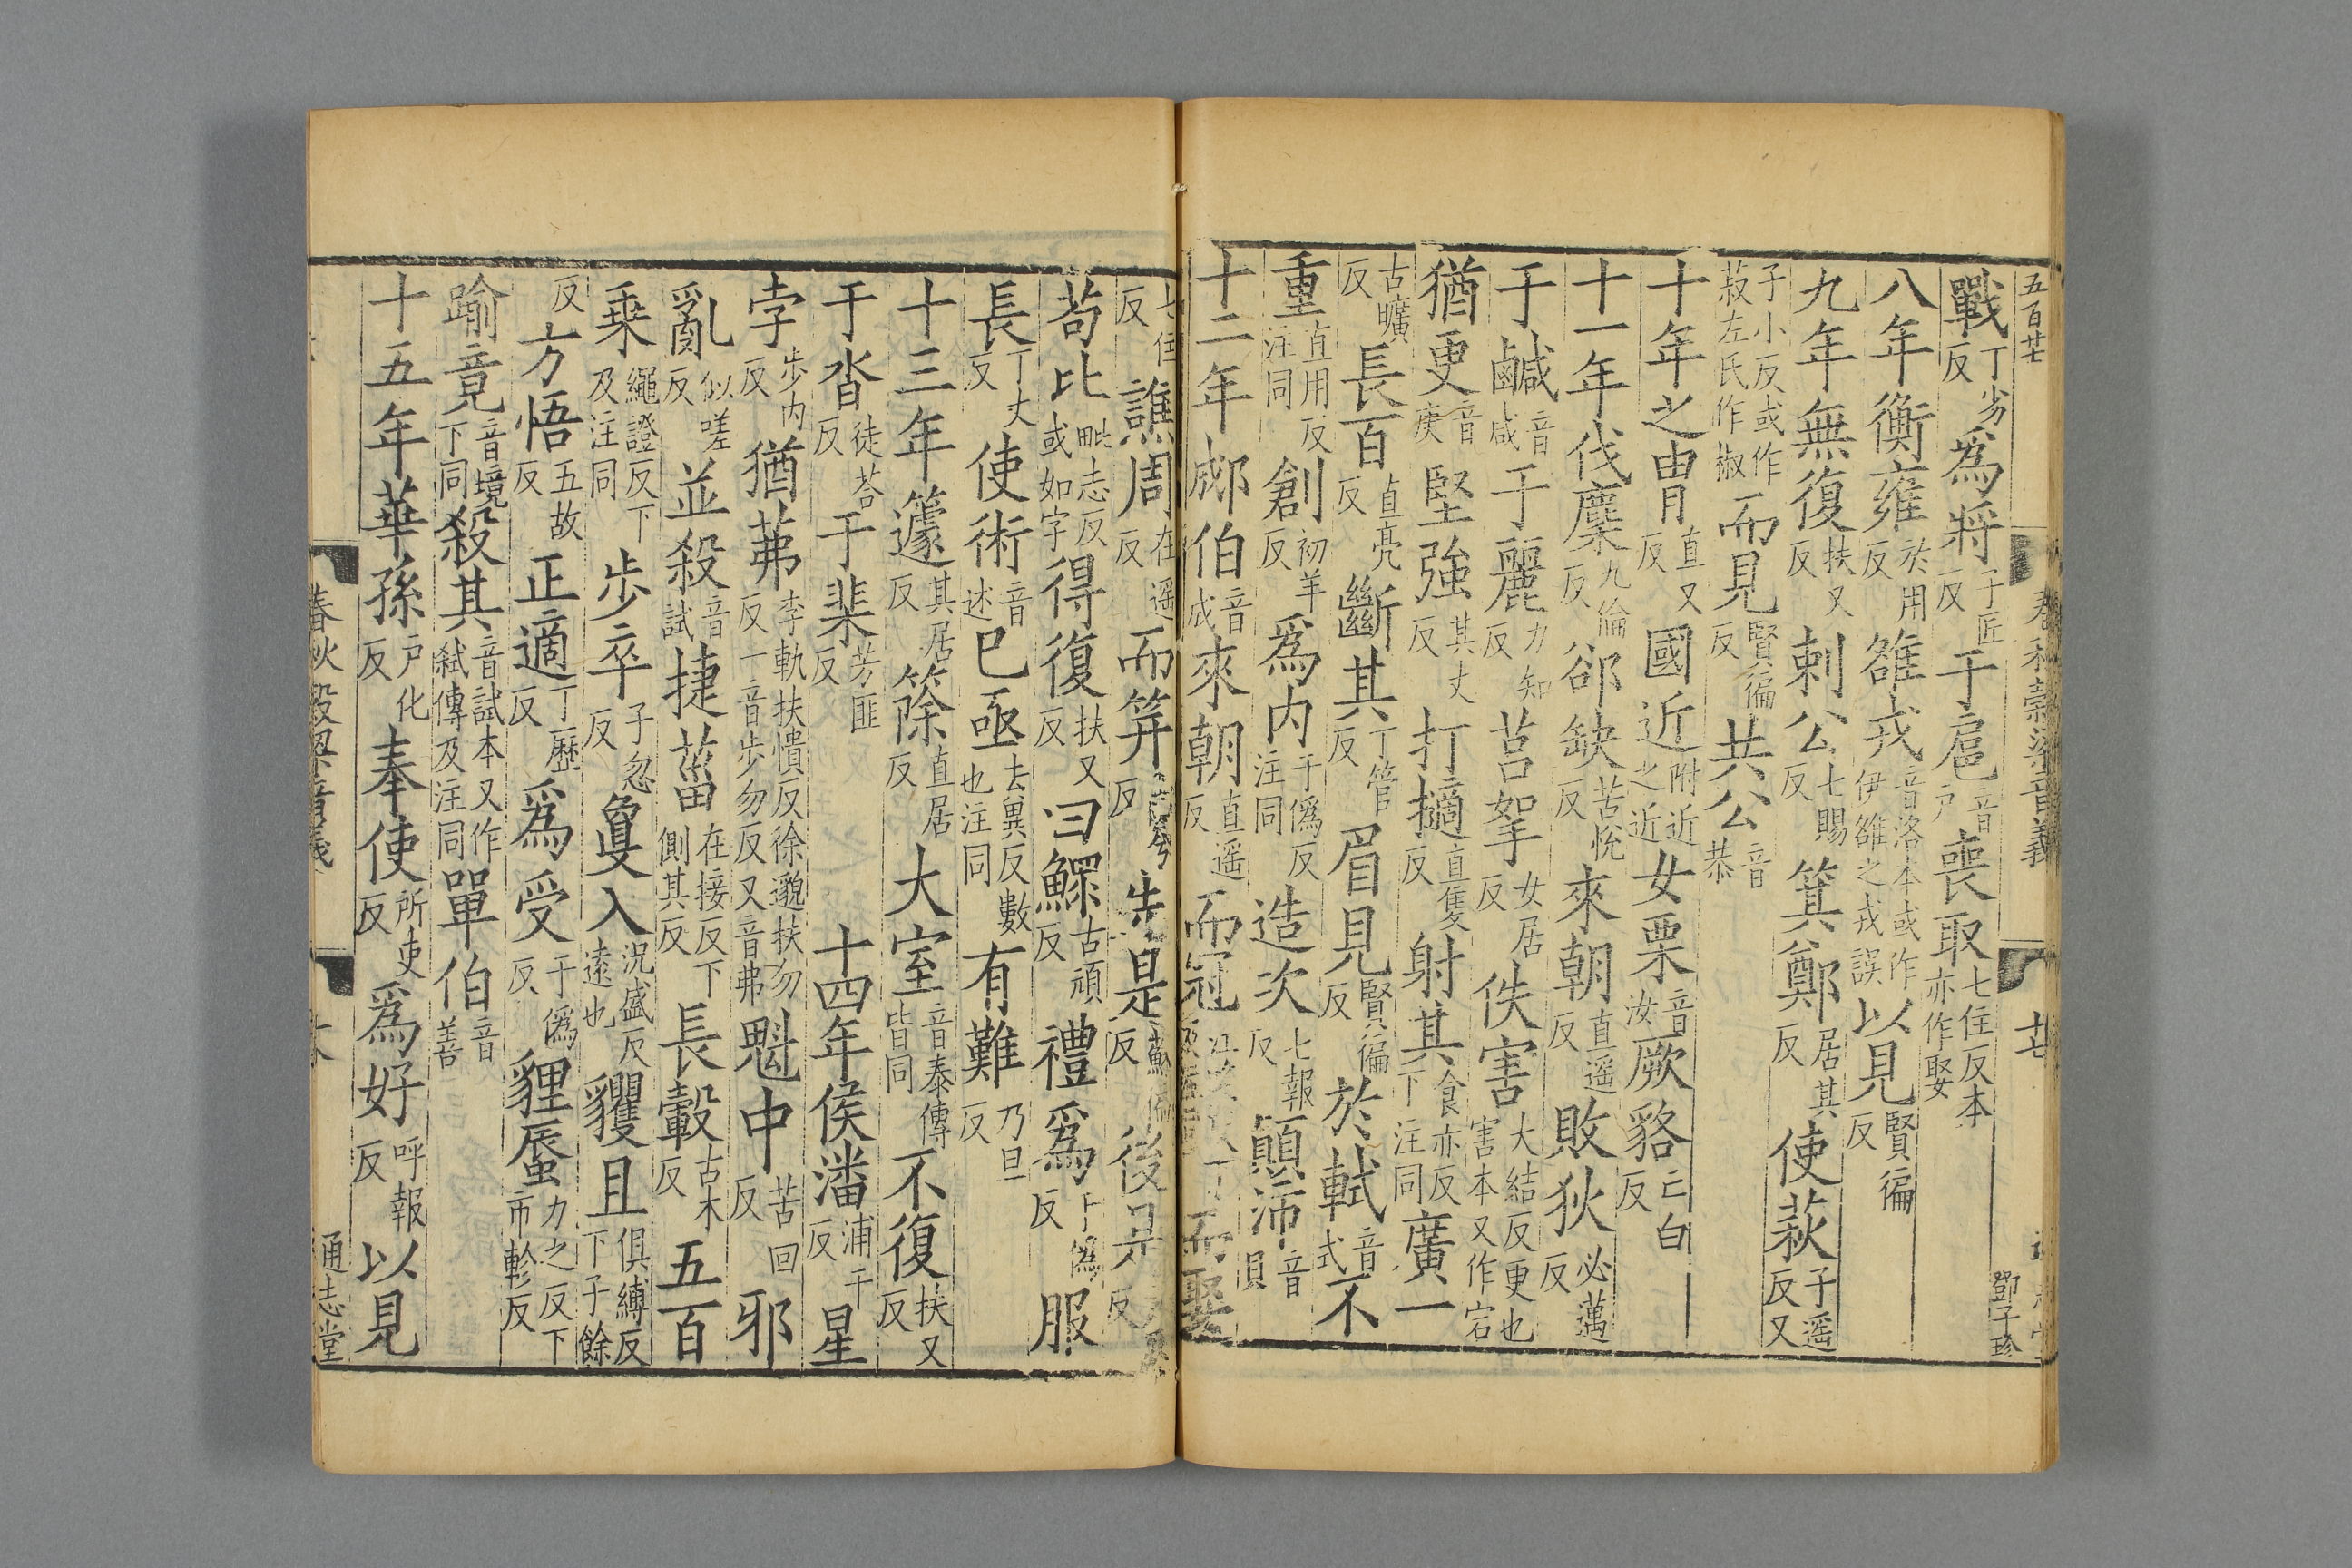 五百廿
春秋穀梁音義 廿 鄧子珍
戰丁劣反爲將子匠反于扈音户喪取七住反本亦作娶
八年衡雍於用反雒戎音洛本或作伊雒之戎誤以見賢徧反
九年無復扶又反刺公七賜反箕鄭居其反使萩子遥反又
子小反或作菽左氏作椒而見賢徧反共公音恭
十年之胄直又反國近附近之近女栗音汝厥貉亡白反
十一年伐麇九倫反郤缺苦悦反來朝直遥反敗狄必邁反
于鹹音咸于麗力知反莒挐女居反佚害大結反更也害本又作宕
猶更音庚堅強其丈反打擿直隻反射其食亦反下注同廣一
古曠反長百直亮反斷其丁管反眉見賢徧反於軾音式不
重直用反注同創初羊反爲内于僞反注同造次七報反顛沛音貝
十二年郕伯音成來朝直遥反而冠而娶
七住反譙周在遥反而笄反先是蘇徧反後是反
茍比毗志反或如字得復扶又反曰鰥古頑反禮爲于僞反服
長丁丈反使術音述巳亟去異反數也注同有難乃旦反
十三年籧其居反篨直居反大室音泰傳皆同不復扶又反
于沓徒荅反于棐芳匪反十四年侯潘浦干反星
孛步内反猶茀李軌扶憒反徐邈扶勿反一音步勿反又音弗魁中苦回反邪
亂似嗟反並殺音試捷菑在接反下側其反長轂古木反五百
乗繩證反下及注同步卒子忽反敻入況盛反遠也貜且俱縛反下子餘
反方悟五故反正適丁歷反爲受于僞反貍蜃力之反下市軫反
踰竟音境下同殺其音試本又作弑傳及注同單伯音善
十五年華孫户化反奉使所吏反爲好呼報反以見
春秋穀梁音義 通志堂